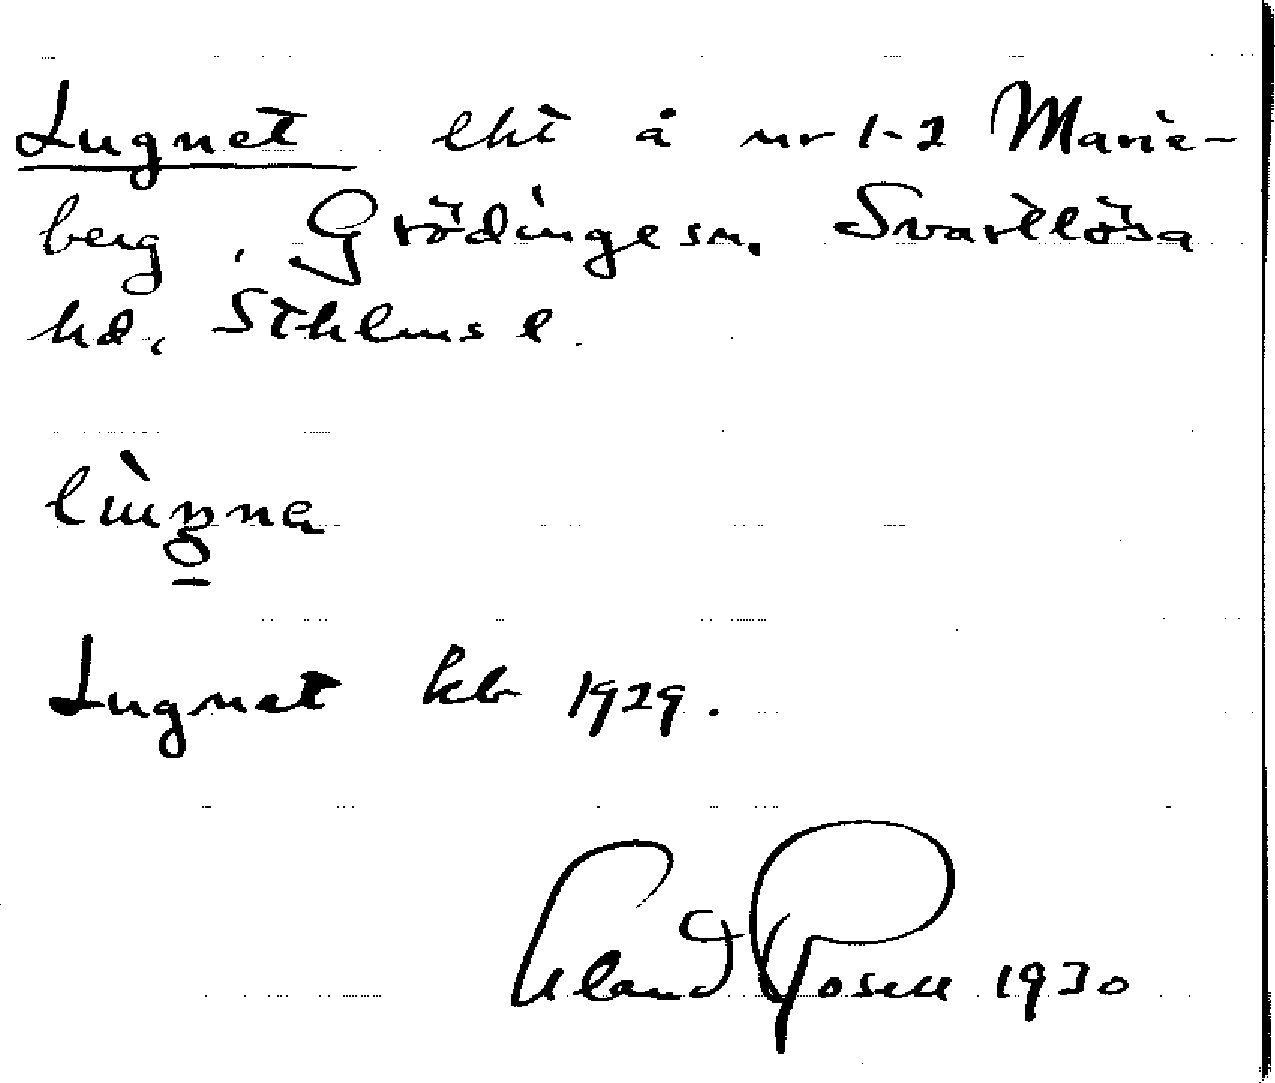 Lugnet lht å nr 1-2 Marie-
berg, Grödinge sn. Svartlösa
hd, Sthlms l.
Lugnet kb 1929.
Erland Rosell 1930